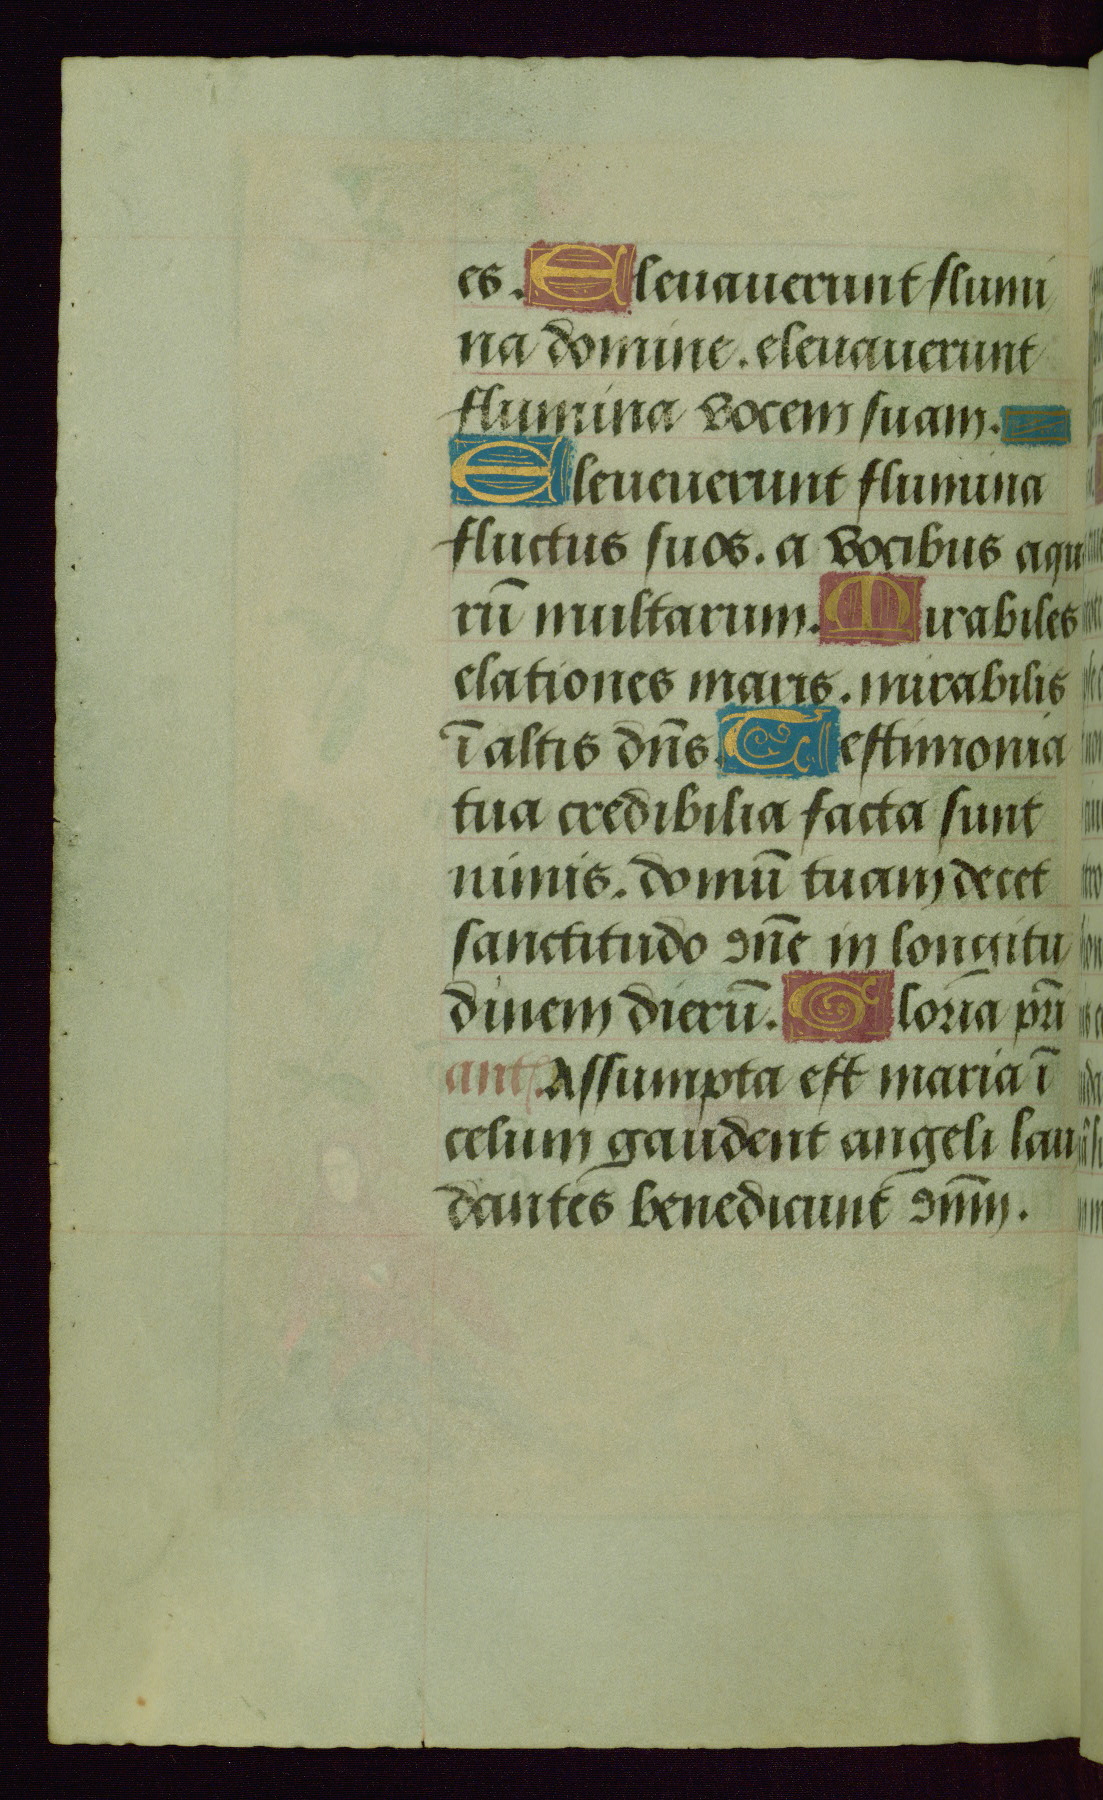 es. Eleuauerunt flumi
na domine. eleuauerunt
flumina vocem suam.
Eleueuerunt flumina
fluctus suos. a vocibus aqu
rū multarum. Mirabiles
elationes maris. mirabilis
ī altis dn̄s. Testimonia
tua credibilia facta sunt
nimis. domū tuam decet
sanctitudo dn̄e in longitu
dinem dierū. Gloria pr̄i
ant. Assumpta est maria ī
celum gaudent angeli lau
dantes benedicunt dn̄m.